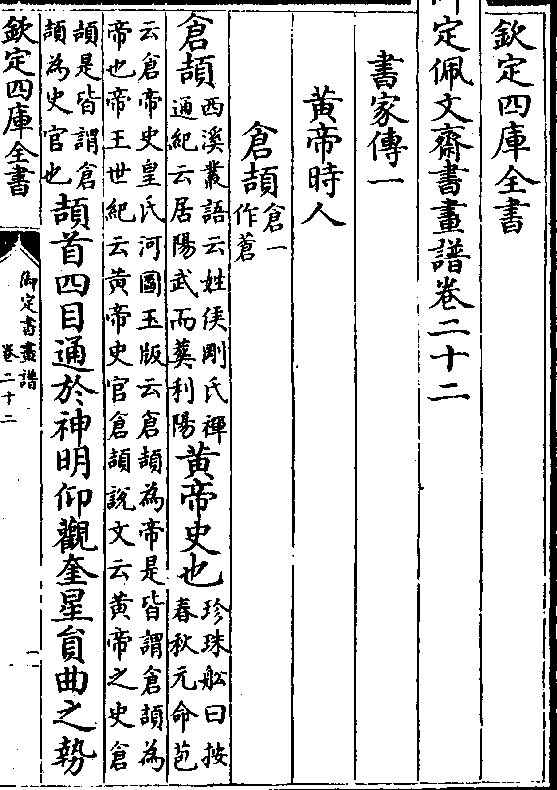 欽定四庫全書
御定佩文齋書畫譜卷二十二
書家傳一
黃帝時人
倉頡倉一作蒼
倉頡西溪叢語云姓侯剛氏禪通紀云居陽武而葬利陽黃帝史也珍珠船曰按春秋元命苞
云倉帝史皇氏河圖玉版云倉頡為帝是皆謂倉頡為
帝也帝王世紀云黃帝史官倉頡說文云黃帝之史倉
頡是皆謂倉頡為史官也頡首四目通於神明仰觀奎星員曲之勢
欽定四庫全書
御定書畫譜
卷二十二
一